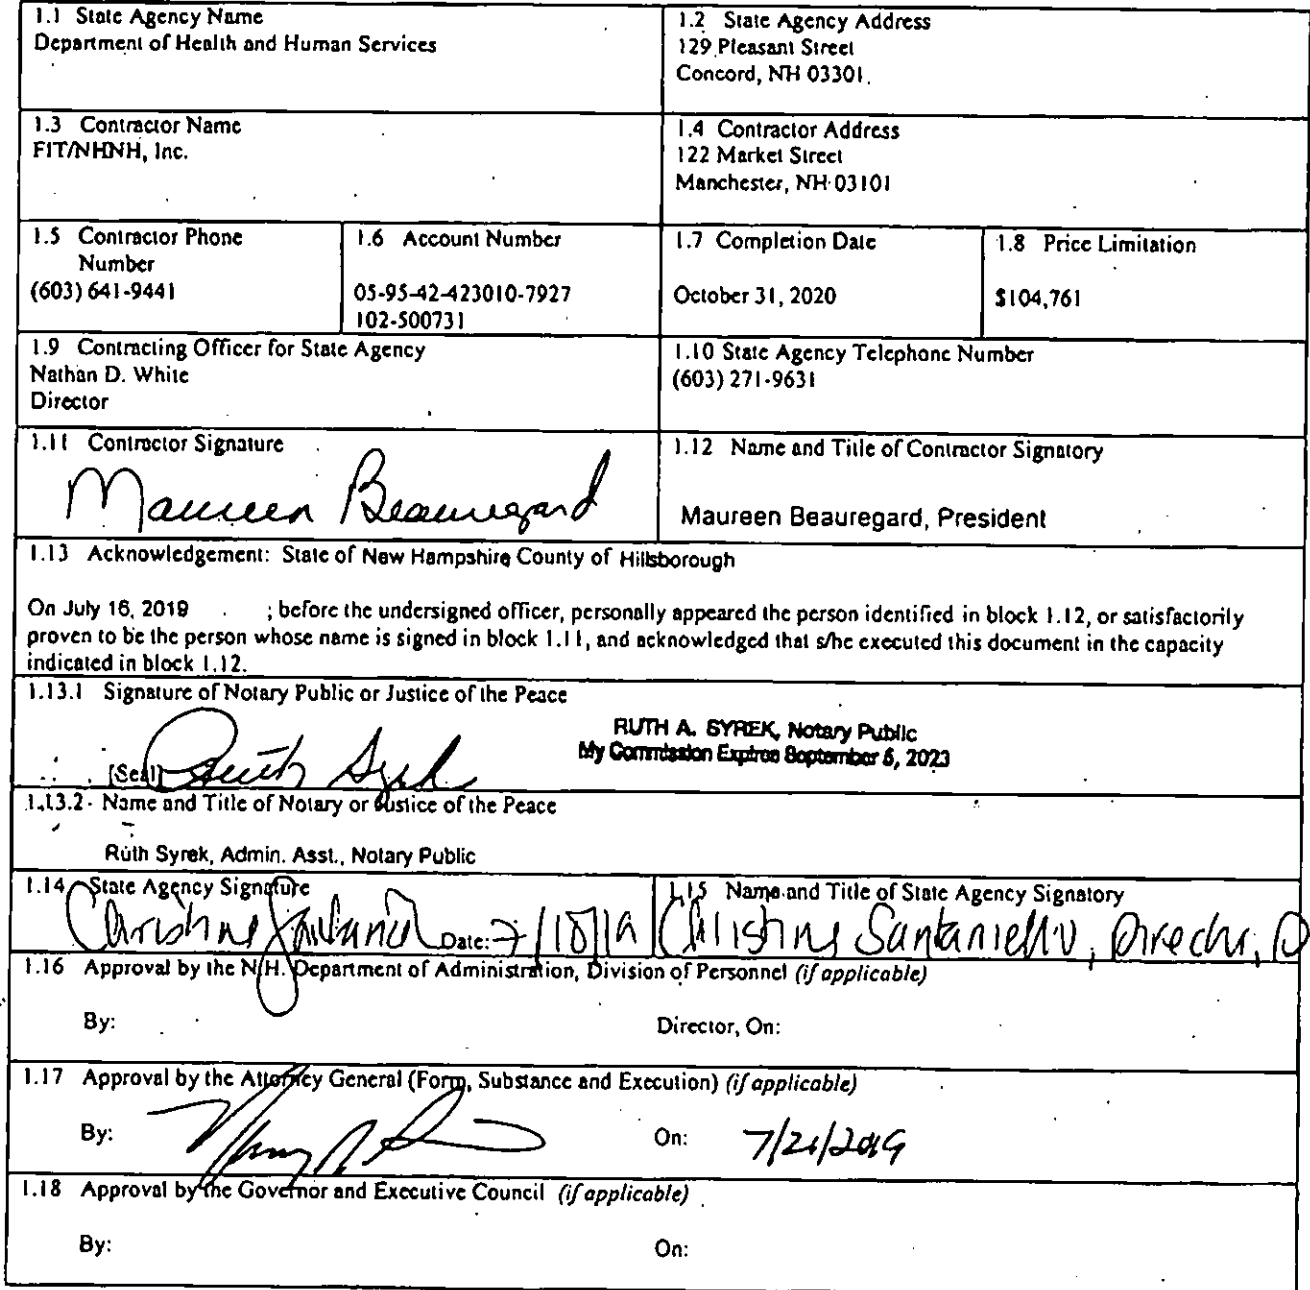 1.1 State Agency Name
Department of Health and Human Services
1.2 State Agency Address
129 Pleasant Street
Concord, NH 03301
1.3 Contractor Name
FIT/NHNH, Inc.
1.4 Contractor Address
122 Market Street
Manchester, NH 03101
1.5 Contractor Phone
Number
(603) 641-9441
1.6 Account Number
05-95-42-423010-7927
102-500731
1.7 Completion Date
October 31, 2020
1.8 Price Limitation
$104,761
1.9 Contracting Officer for State Agency
Nathan D. White
Director
1.10 State Agency Telephone Number
(603) 271-9631
1.11 Contractor Signature
Maureen Beauregard
1.12 Name and Title of Contractor Signatory
Maureen Beauregard, President
1.13 Acknowledgement: State of New Hampshire County of Hillsborough
On July 16, 2019 ; before the undersigned officer, personally appeared the person identified in block 1.12, or satisfactorily
proven to be the person whose name is signed in block 1.11, and acknowledged that s/he executed this document in the capacity
indicated in block 1.12.
1.13.1 Signature of Notary Public or Justice of the Peace
RUTH A. SYREK, Notary Public
My Commission Expires September 5, 2023
[Seal] Ruth Syrek
1.13.2 Name and Title of Notary or Justice of the Peace
Ruth Syrek, Admin. Asst., Notary Public
1.14 State Agency Signature
Christine Santaniello Date: 7/18/19
1.15 Name and Title of State Agency Signatory
Christine Santaniello, Director, D
1.16 Approval by the N.H. Department of Administration, Division of Personnel (if applicable)
By: Director, On:
1.17 Approval by the Attorney General (Form, Substance and Execution) (if applicable)
By: On: 7/21/2019
1.18 Approval by the Governor and Executive Council (if applicable)
By: On: